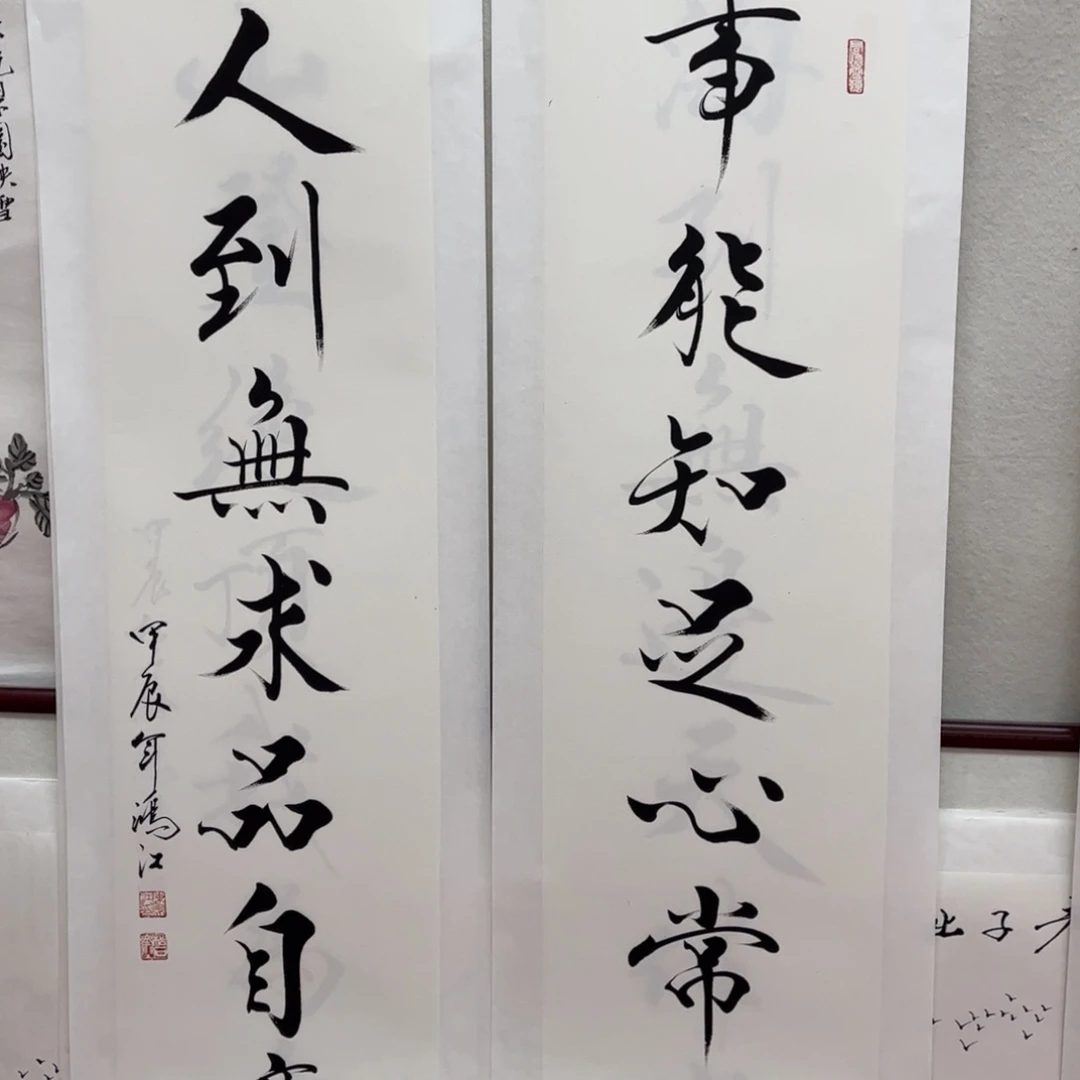 事能知足心常
人到無求品自
甲辰年鴻江